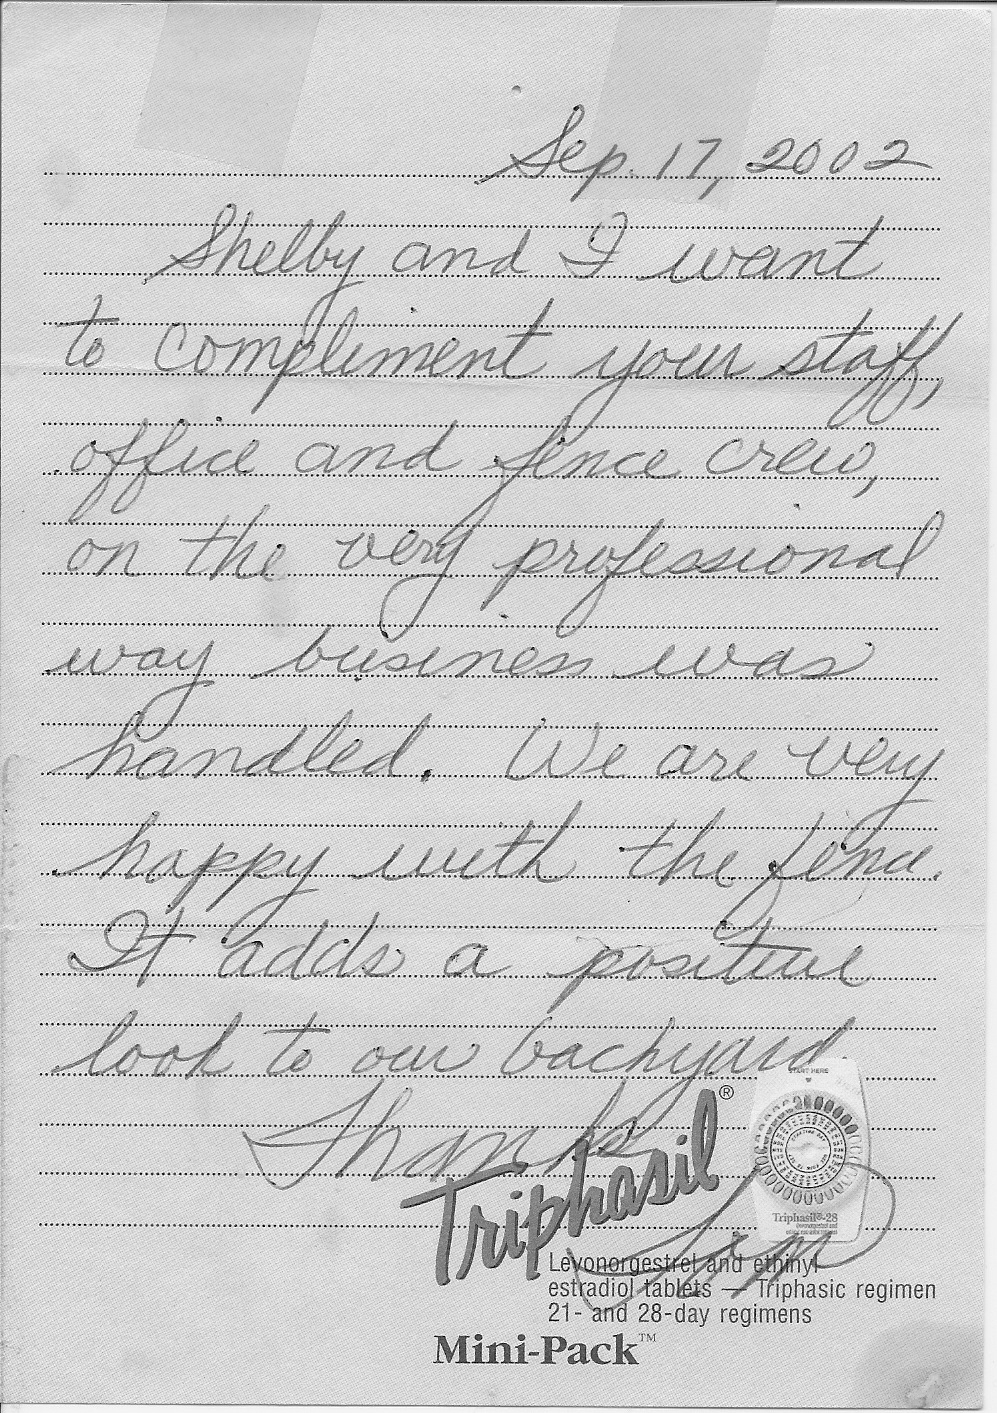 Sep. 17, 2002
Shelby and I want
to compliment your staff,
office and fence crew,
on the very professional
way business was
handled. We are very
happy with the fence.
It adds a positive
look to our backyard
Thanks
START HERE
Triphasil®
Triphasil®-28
Levonorgestrel and ethinyl
estradiol tablets — Triphasic regimen
21- and 28-day regimens
Mini-Pack™